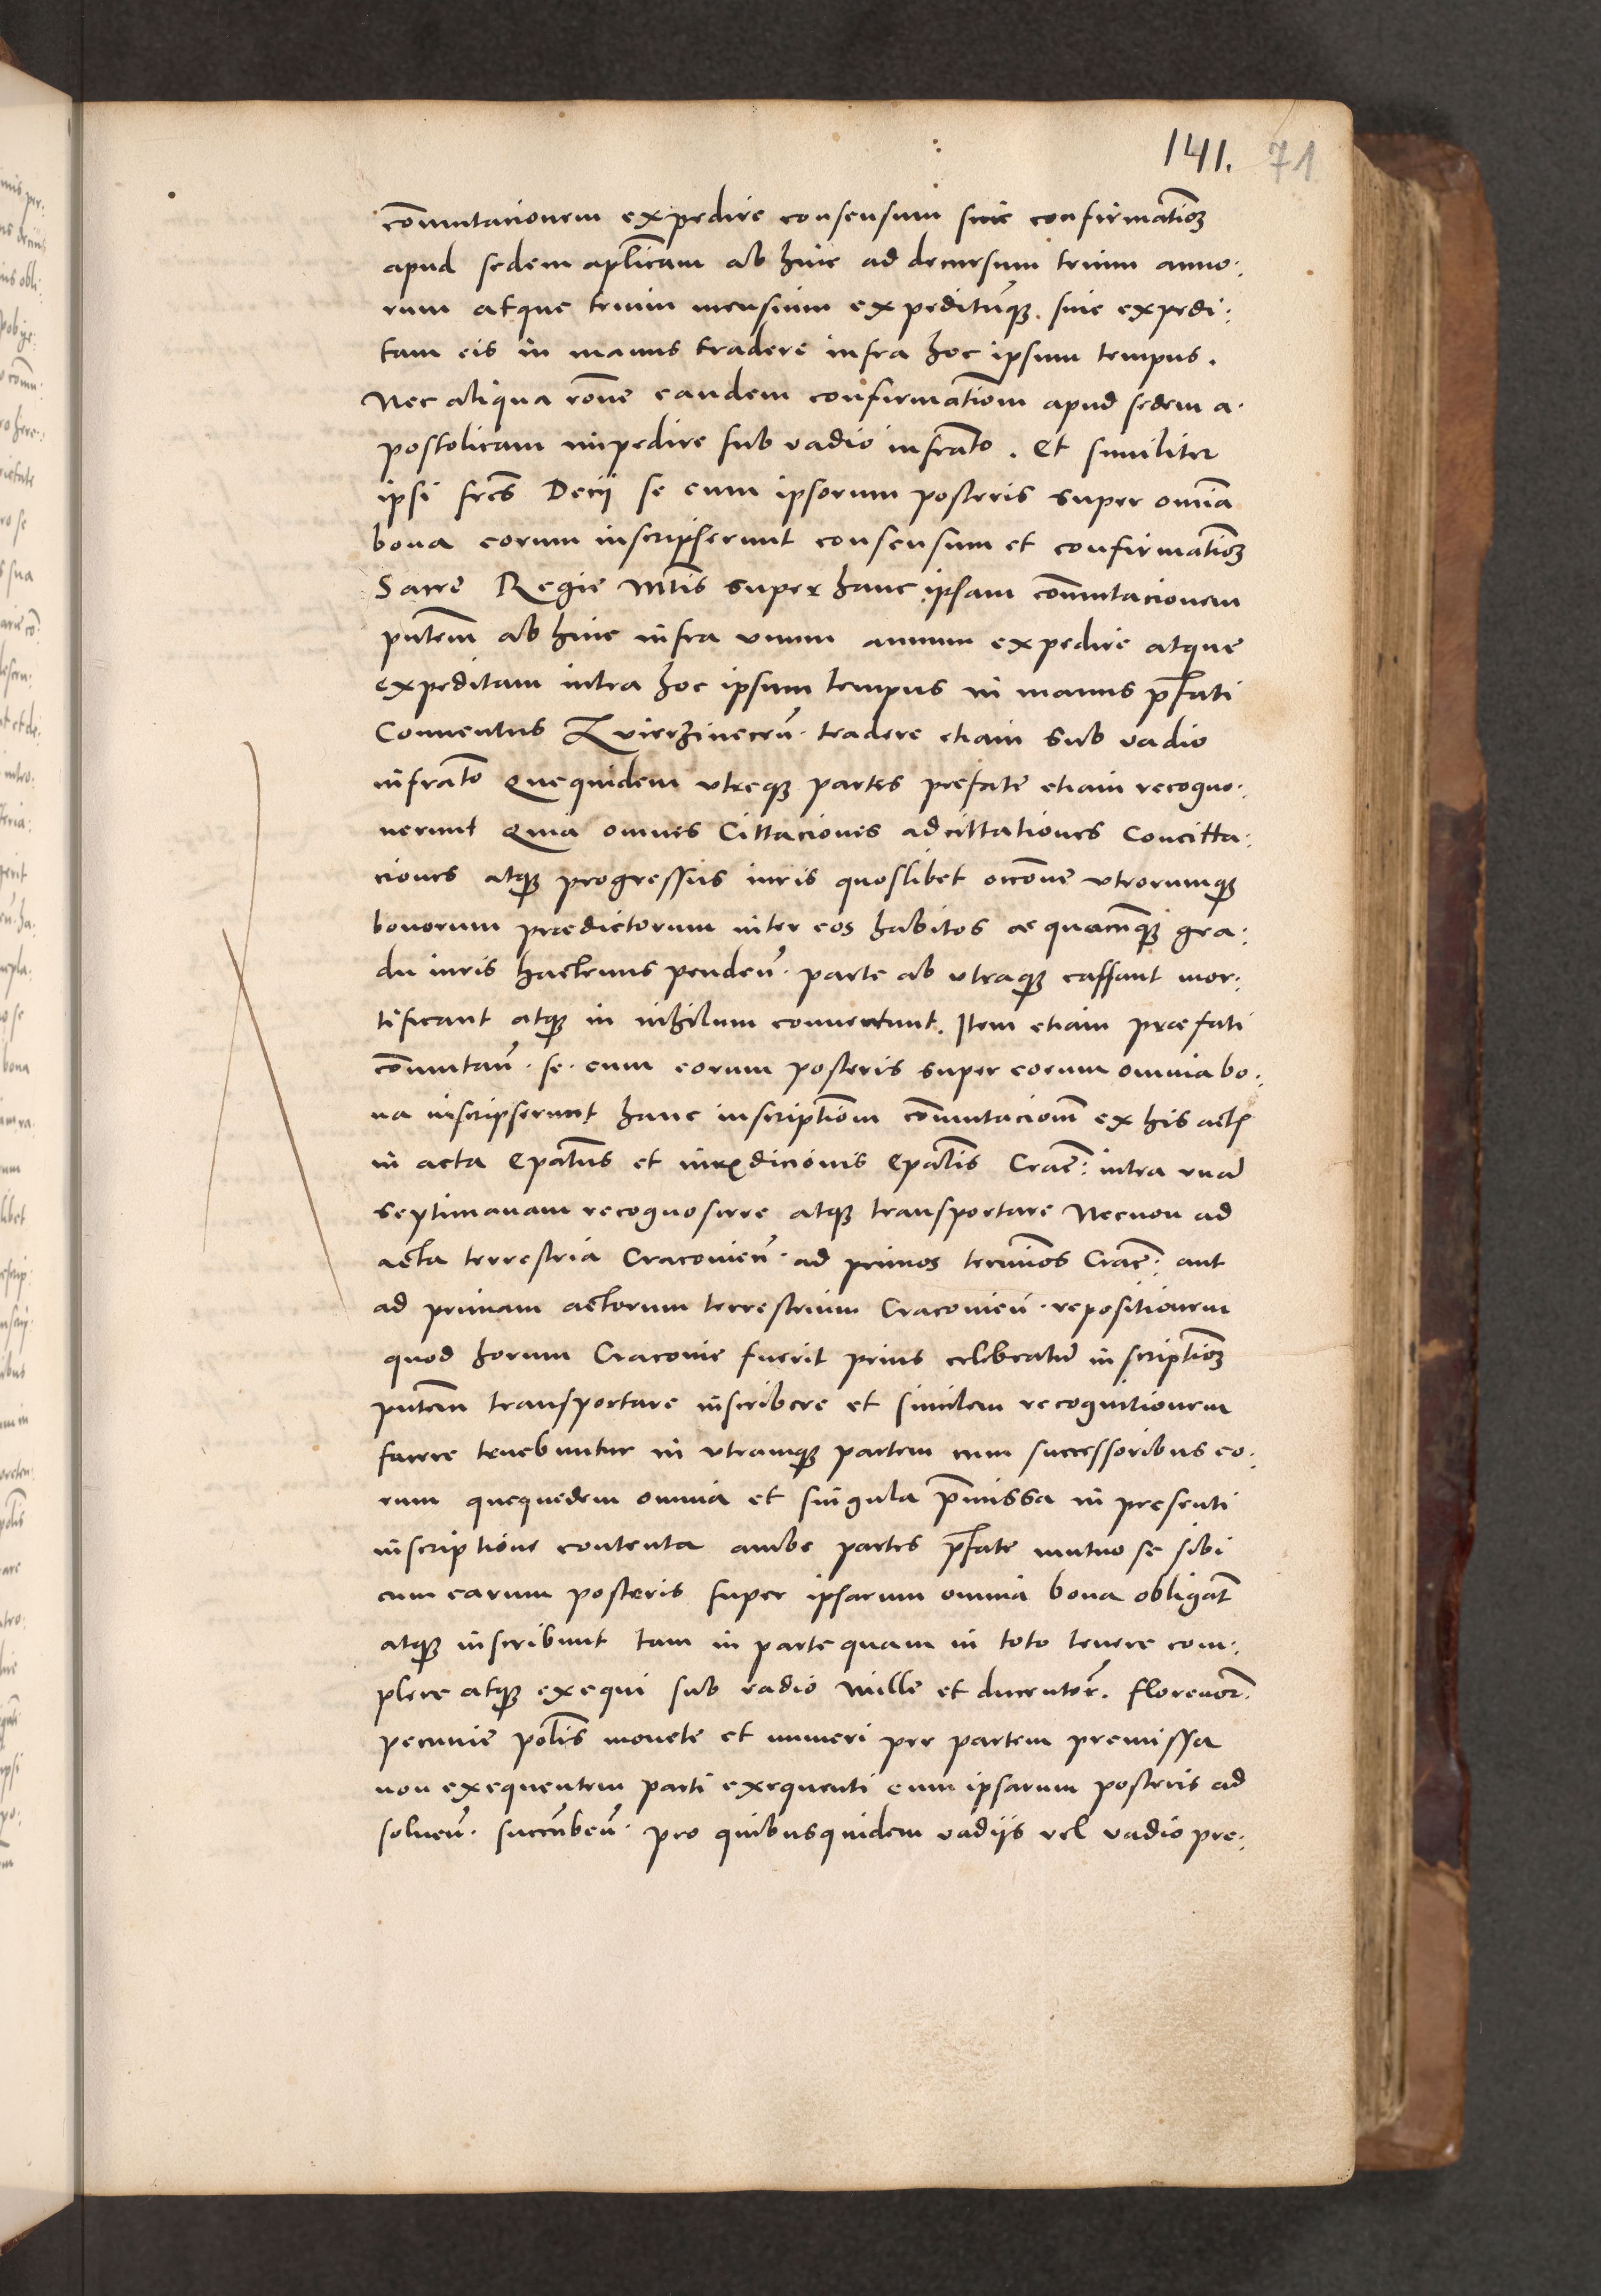 141. 71
com̅utacionem expedire consensum siue confirmatio̅ꝫ
apud sedem apl̅icam ab hinc ad decursum trium anno:
rum atque trium mensium expeditu̅qꝫ. siue expedi:
tam eis in manus tradere infra hoc ipsum tempus.
Nec aliqua ro̅ne eandem confirmatio̅m apud sedem a.
postolicam impedire sub vadio infra̅to. Et similiter
ipsi fr̅es Decij se cum ipsorum posteris super om̅ia
bona eorum inscripserunt consensum et confirmatio̅ꝫ
Sacre Regie Mt̅is super hanc ipsam com̅utacionem
pn̅tem ab hinc infra vnum annum expedire atque
expeditam intra hoc ipsum tempus in manus p̅fati
Conuentus Zvierzinecen̅. tradere etiam sub vadio
infra̅to Quequidem vtreqꝫ partes prefate etiam recogno:
uerunt Quia omnes Cittaciones adcittationes Concitta:
ciones atqꝫ progressus iuris quoslibet occ̅one vtrorumqꝫ
bonorum prædictorum inter eos habitos ac quocu̅qꝫ gra:
du iuris hactenus penden̅. parte ab vtraqꝫ cassant mor:
tificant atqꝫ in nihilum conuertunt. Item etiam præfati
com̅utan̅. se. cum eorum posteris super eorum omnia bo:
na inscripserunt hanc inscriptio̅m com̅utacio̅m ex his actꝭ
in acta Ep̅atus et iurꝭdicionis Ep̅alis Crac̅: intra vna̅
septimanam recognoscere atqꝫ transportare Necnon ad
acta terrestria Cracouien̅. ad primos termi̅os Crac̅: aut
ad primam actorum terrestrium Cracouien̅. repositionem
quod horum Cracouie fuerit prius celebratu̅ inscriptio̅ꝫ
pn̅tem transportare inscribere et similem recognitionem
facere tenebuntur in vtramqꝫ partem cum successoribus eo:
rum quequedem omnia et singula p̅missa in presenti
inscriptione contenta ambe partes p̅fate mutuo se sibi
cum earum posteris super ipsarum omnia bona obliga̅t
atqꝫ inscribunt tam in parte quam in toto tenere com:
plere atqꝫ exequi sub vadio Mille et ducentor̅. florenor̅.
pecunie pol̅is monete et numeri per partem premissa
non exequentem parti exequenti cum ipsarum posteris ad
soluen̅. succu̅ben̅. pro quibusquidem vadijs vel vadio pre: